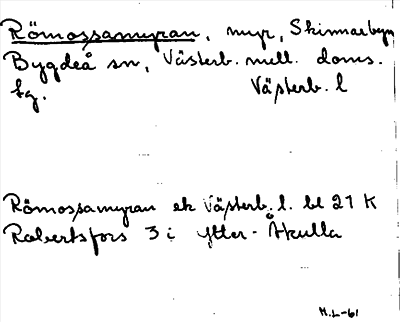 Römossamyran, myr, Skinnarbyn
Bygdeå sn, Västerb. mell. doms.
tg. Västerb. l
Römossamyran ek Västerb. l. bl 21 K
Robertsfors 3 i Ytter-Åkulla
H.L-61